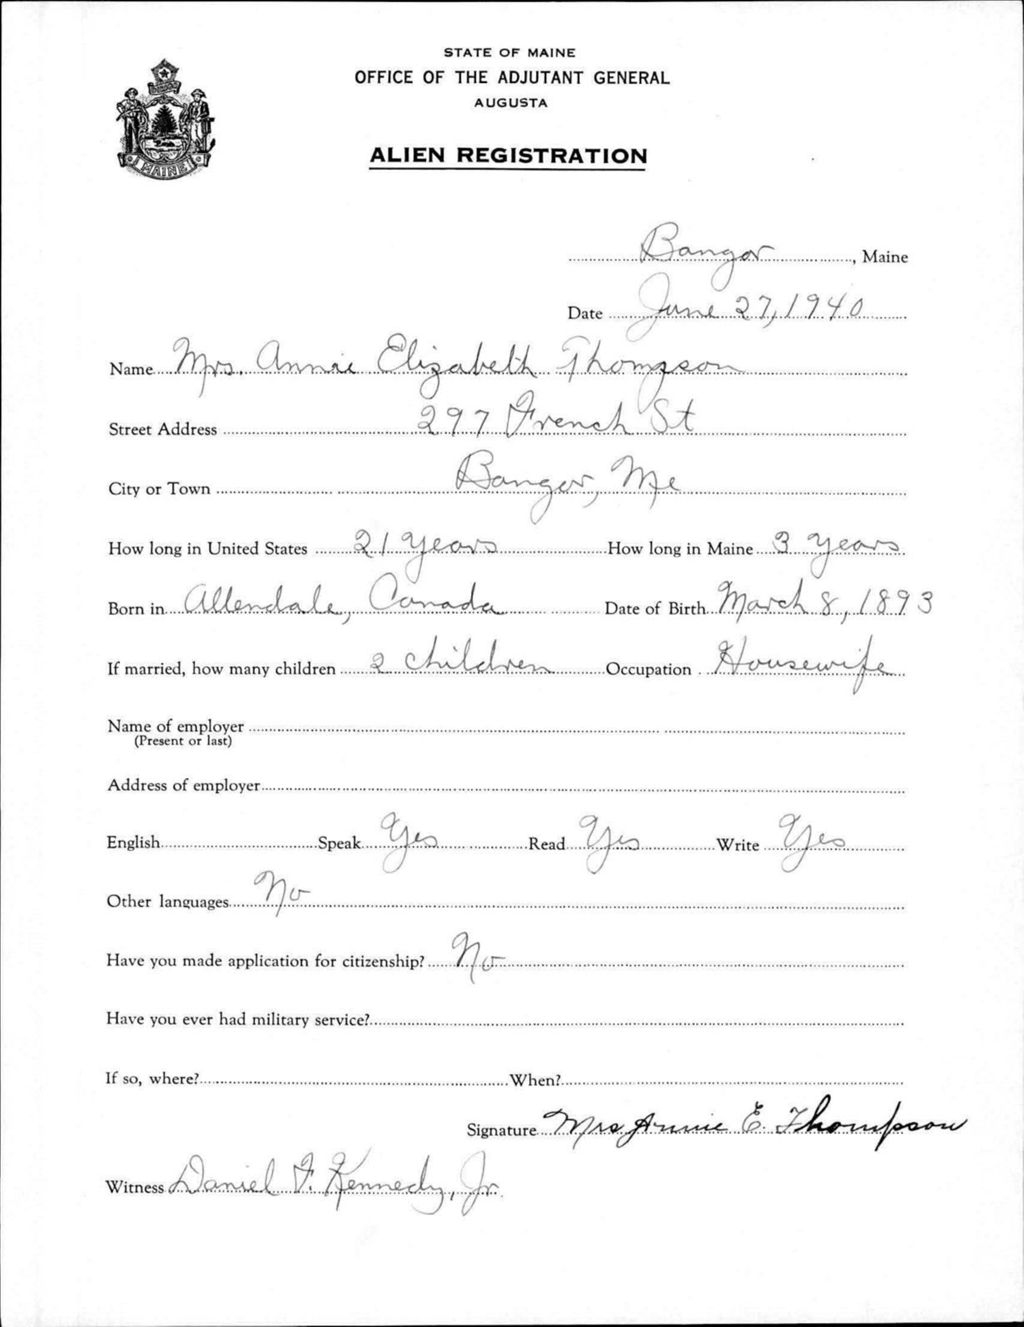 STATE OF MAINE
OFFICE OF THE ADJUTANT GENERAL
AUGUSTA
ALIEN REGISTRATION
MAINE
Bangor, Maine
Date June 27, 1940
Name Mrs. Annie Elizabeth Thompson
Street Address 297 French St
City or Town Bangor, Me
How long in United States 21 years How long in Maine 3 years
Born in Allendale, Canada Date of Birth March 8, 1893
If married, how many children 2 children Occupation Housewife
Name of employer
(Present or last)
Address of employer
English Speak Yes Read Yes Write Yes
Other languages No
Have you made application for citizenship? No
Have you ever had military service?
If so, where? When?
Signature Mrs Annie E. Thompson
Witness Daniel F. Kennedy, Jr.